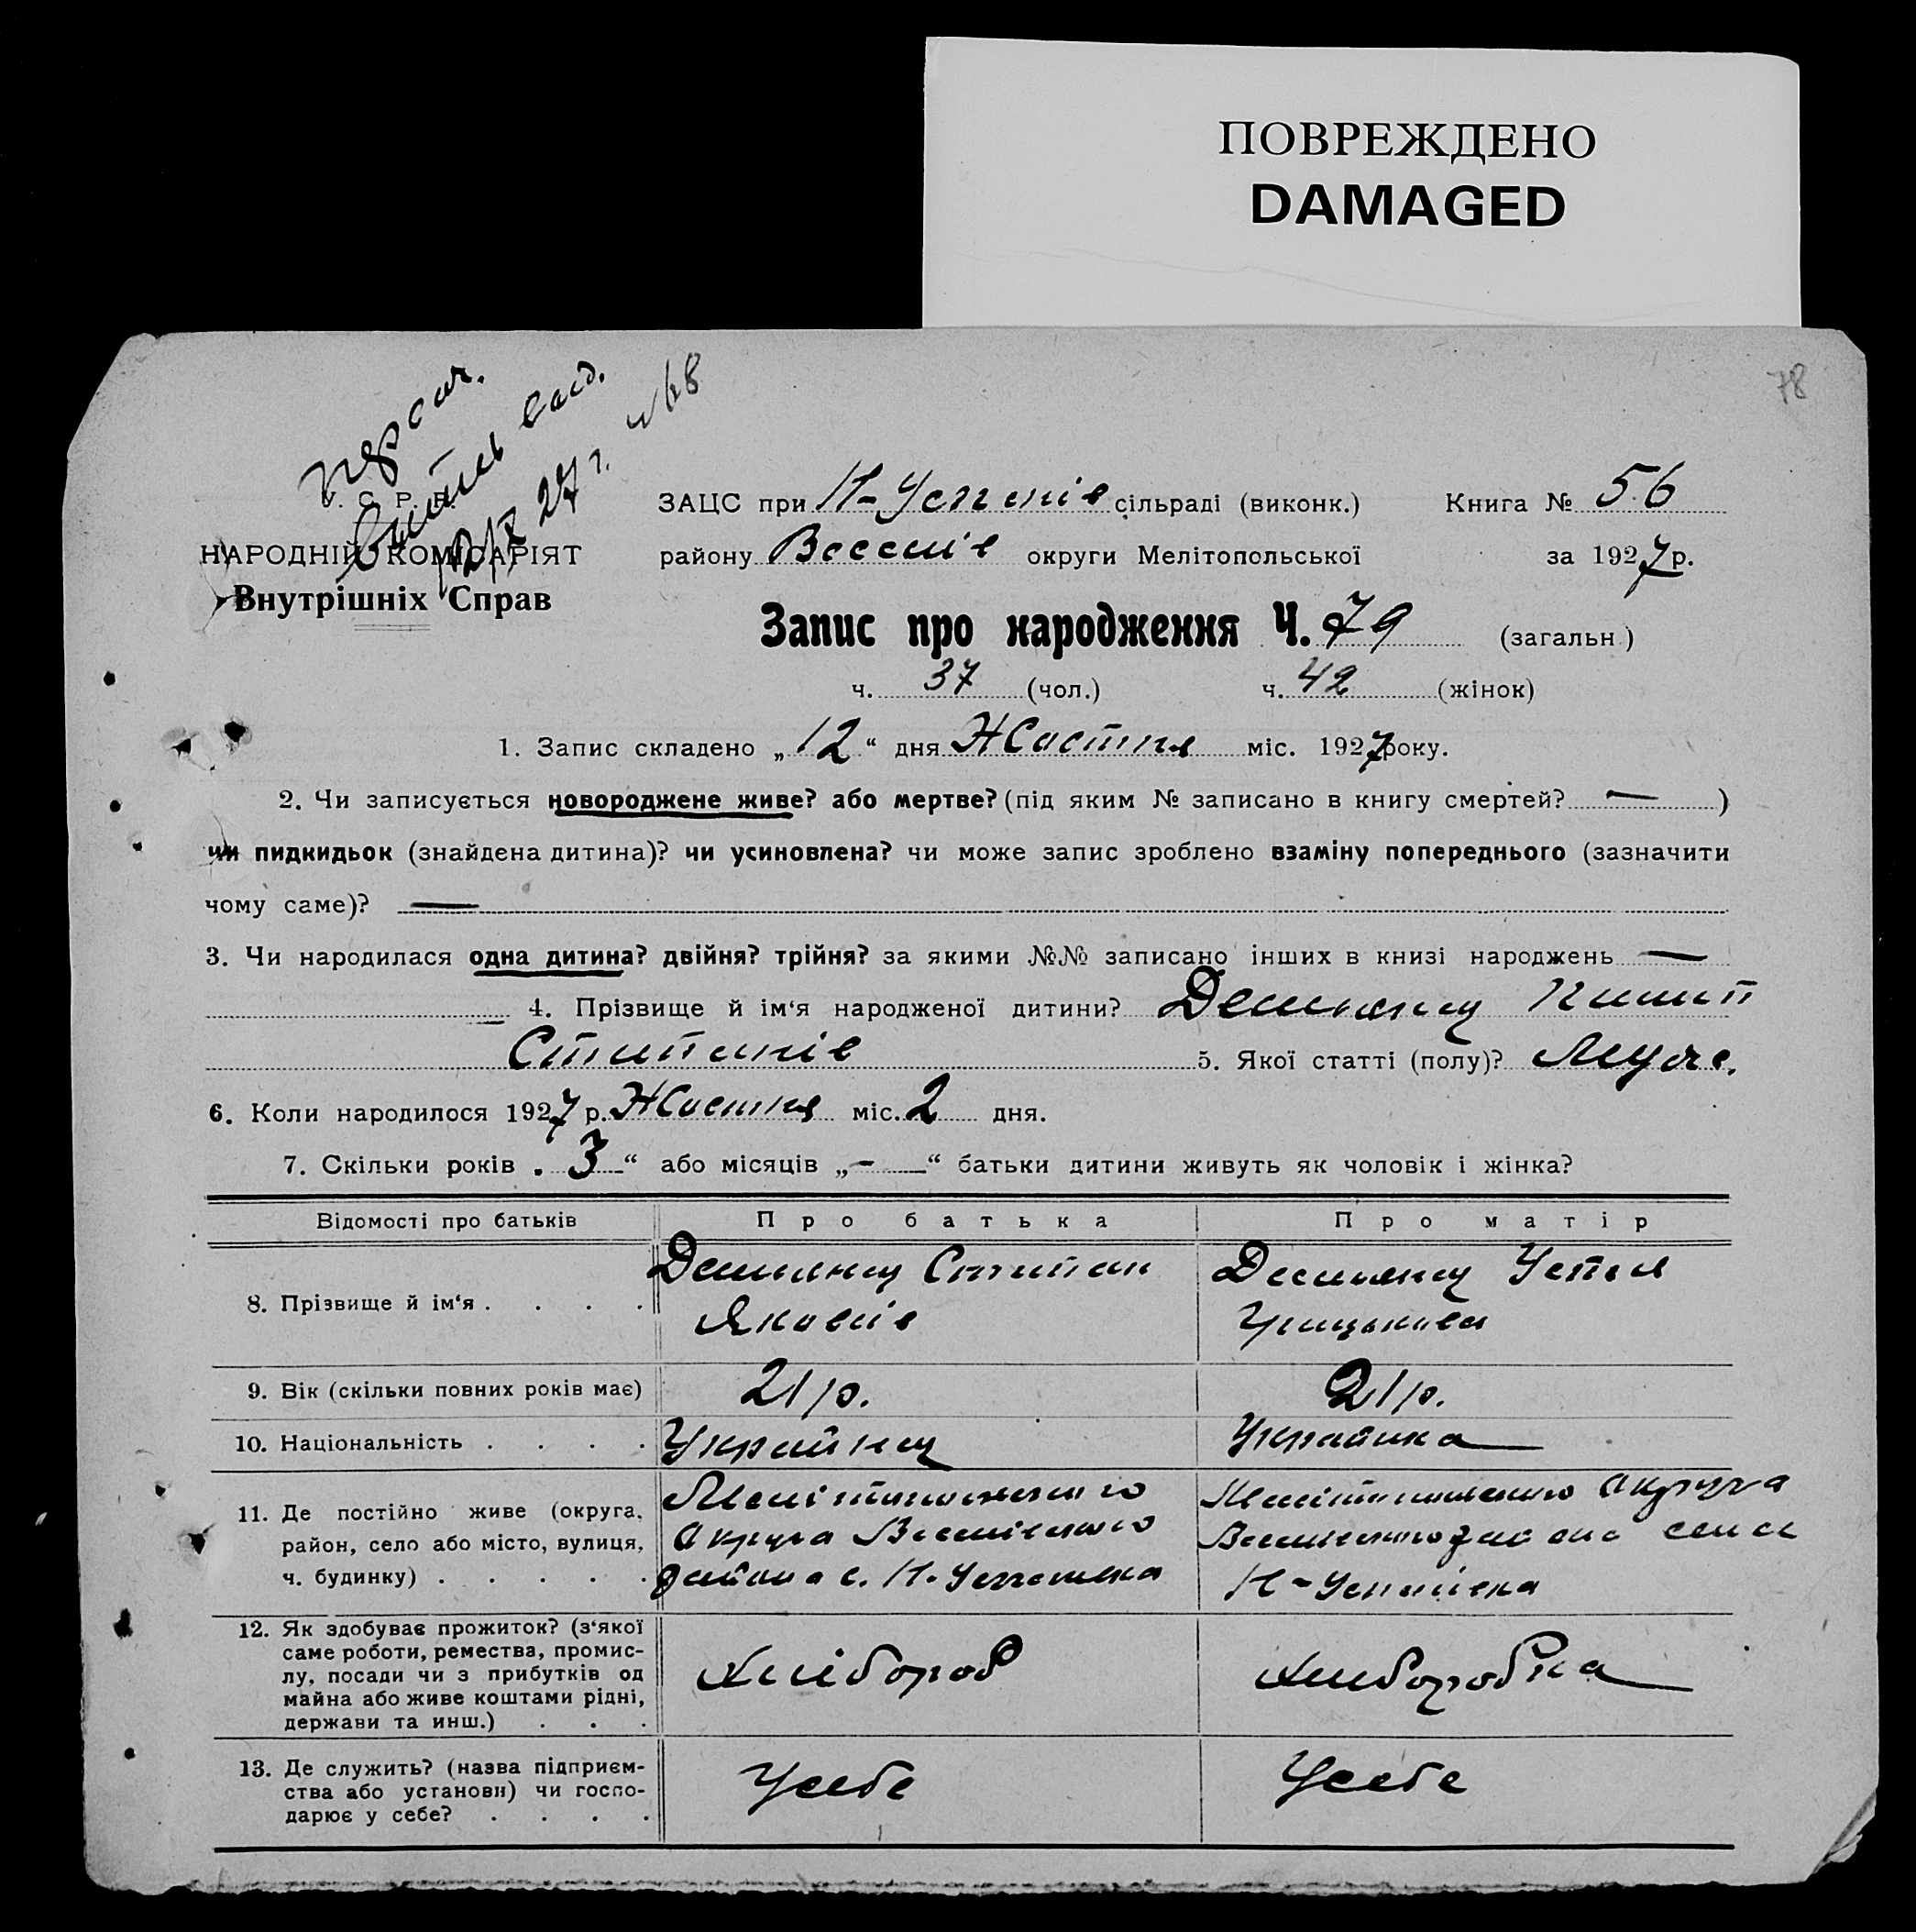 ПОВРЕЖДЕНО
DAMAGED
78
№ 68
27 г.
У. С. Р. Р.
НАРОДНІЙ КОМІСАРІЯТ
Внутрішніх Справ
ЗАЦС при Н-Успенів сільраді (виконк.) Книга № 56
району Веселів округи Мелітопольської за 1927 р.
Запис про народження Ч. 79 (загальн.)
ч. 37 (чол.) ч. 42 (жінок)
1. Запис складено „12“ дня Жовтня міс. 1927 року.
2. Чи записується новороджене живе? або мертве? (під яким № записано в книгу смертей? — )
чи пидкидьок (знайдена дитина)? чи усиновлена? чи може запис зроблено взаміну попереднього (зазначити
чому саме)? —
3. Чи народилася одна дитина? двійня? трійня? за якими №№ записано інших в книзі народжень —
4. Прізвище й ім‘я народженої дитини? Демьянец Пилип
Степанів 5. Якої статті (полу)? Муж.
6. Коли народилося 1927 р. Жовтня міс. 2 дня.
7. Скільки років „3“ або місяців „-“ батьки дитини живуть як чоловік і жінка?
Відомості про батьків Про батька Про матір
8. Прізвище й ім‘я . . . . Демьянец Степан Яковів Демьянец Устья Грицькова
9. Вік (скільки повних років має) 21 р. 21 р.
10. Національність . . . . Українец Українка
11. Де постійно живе (округа, Мелітопольського Мелітопольського округа
район, село або місто, вулиця, округа Веселівського Веселівского района села
ч. будинку) . . . . . района с. Н-Успенівка Н-Успенівка
12. Як здобуває прожиток? (з‘якої
саме роботи, ремества, промис-
лу, посади чи з прибутків од Хлібороб Хліборобка
майна або живе коштами рідні,
держави та инш.) . . .
13. Де служить? (назва підприєм-
ства або установи) чи госпо- Усебе Усебе
дарює у себе? . . . .